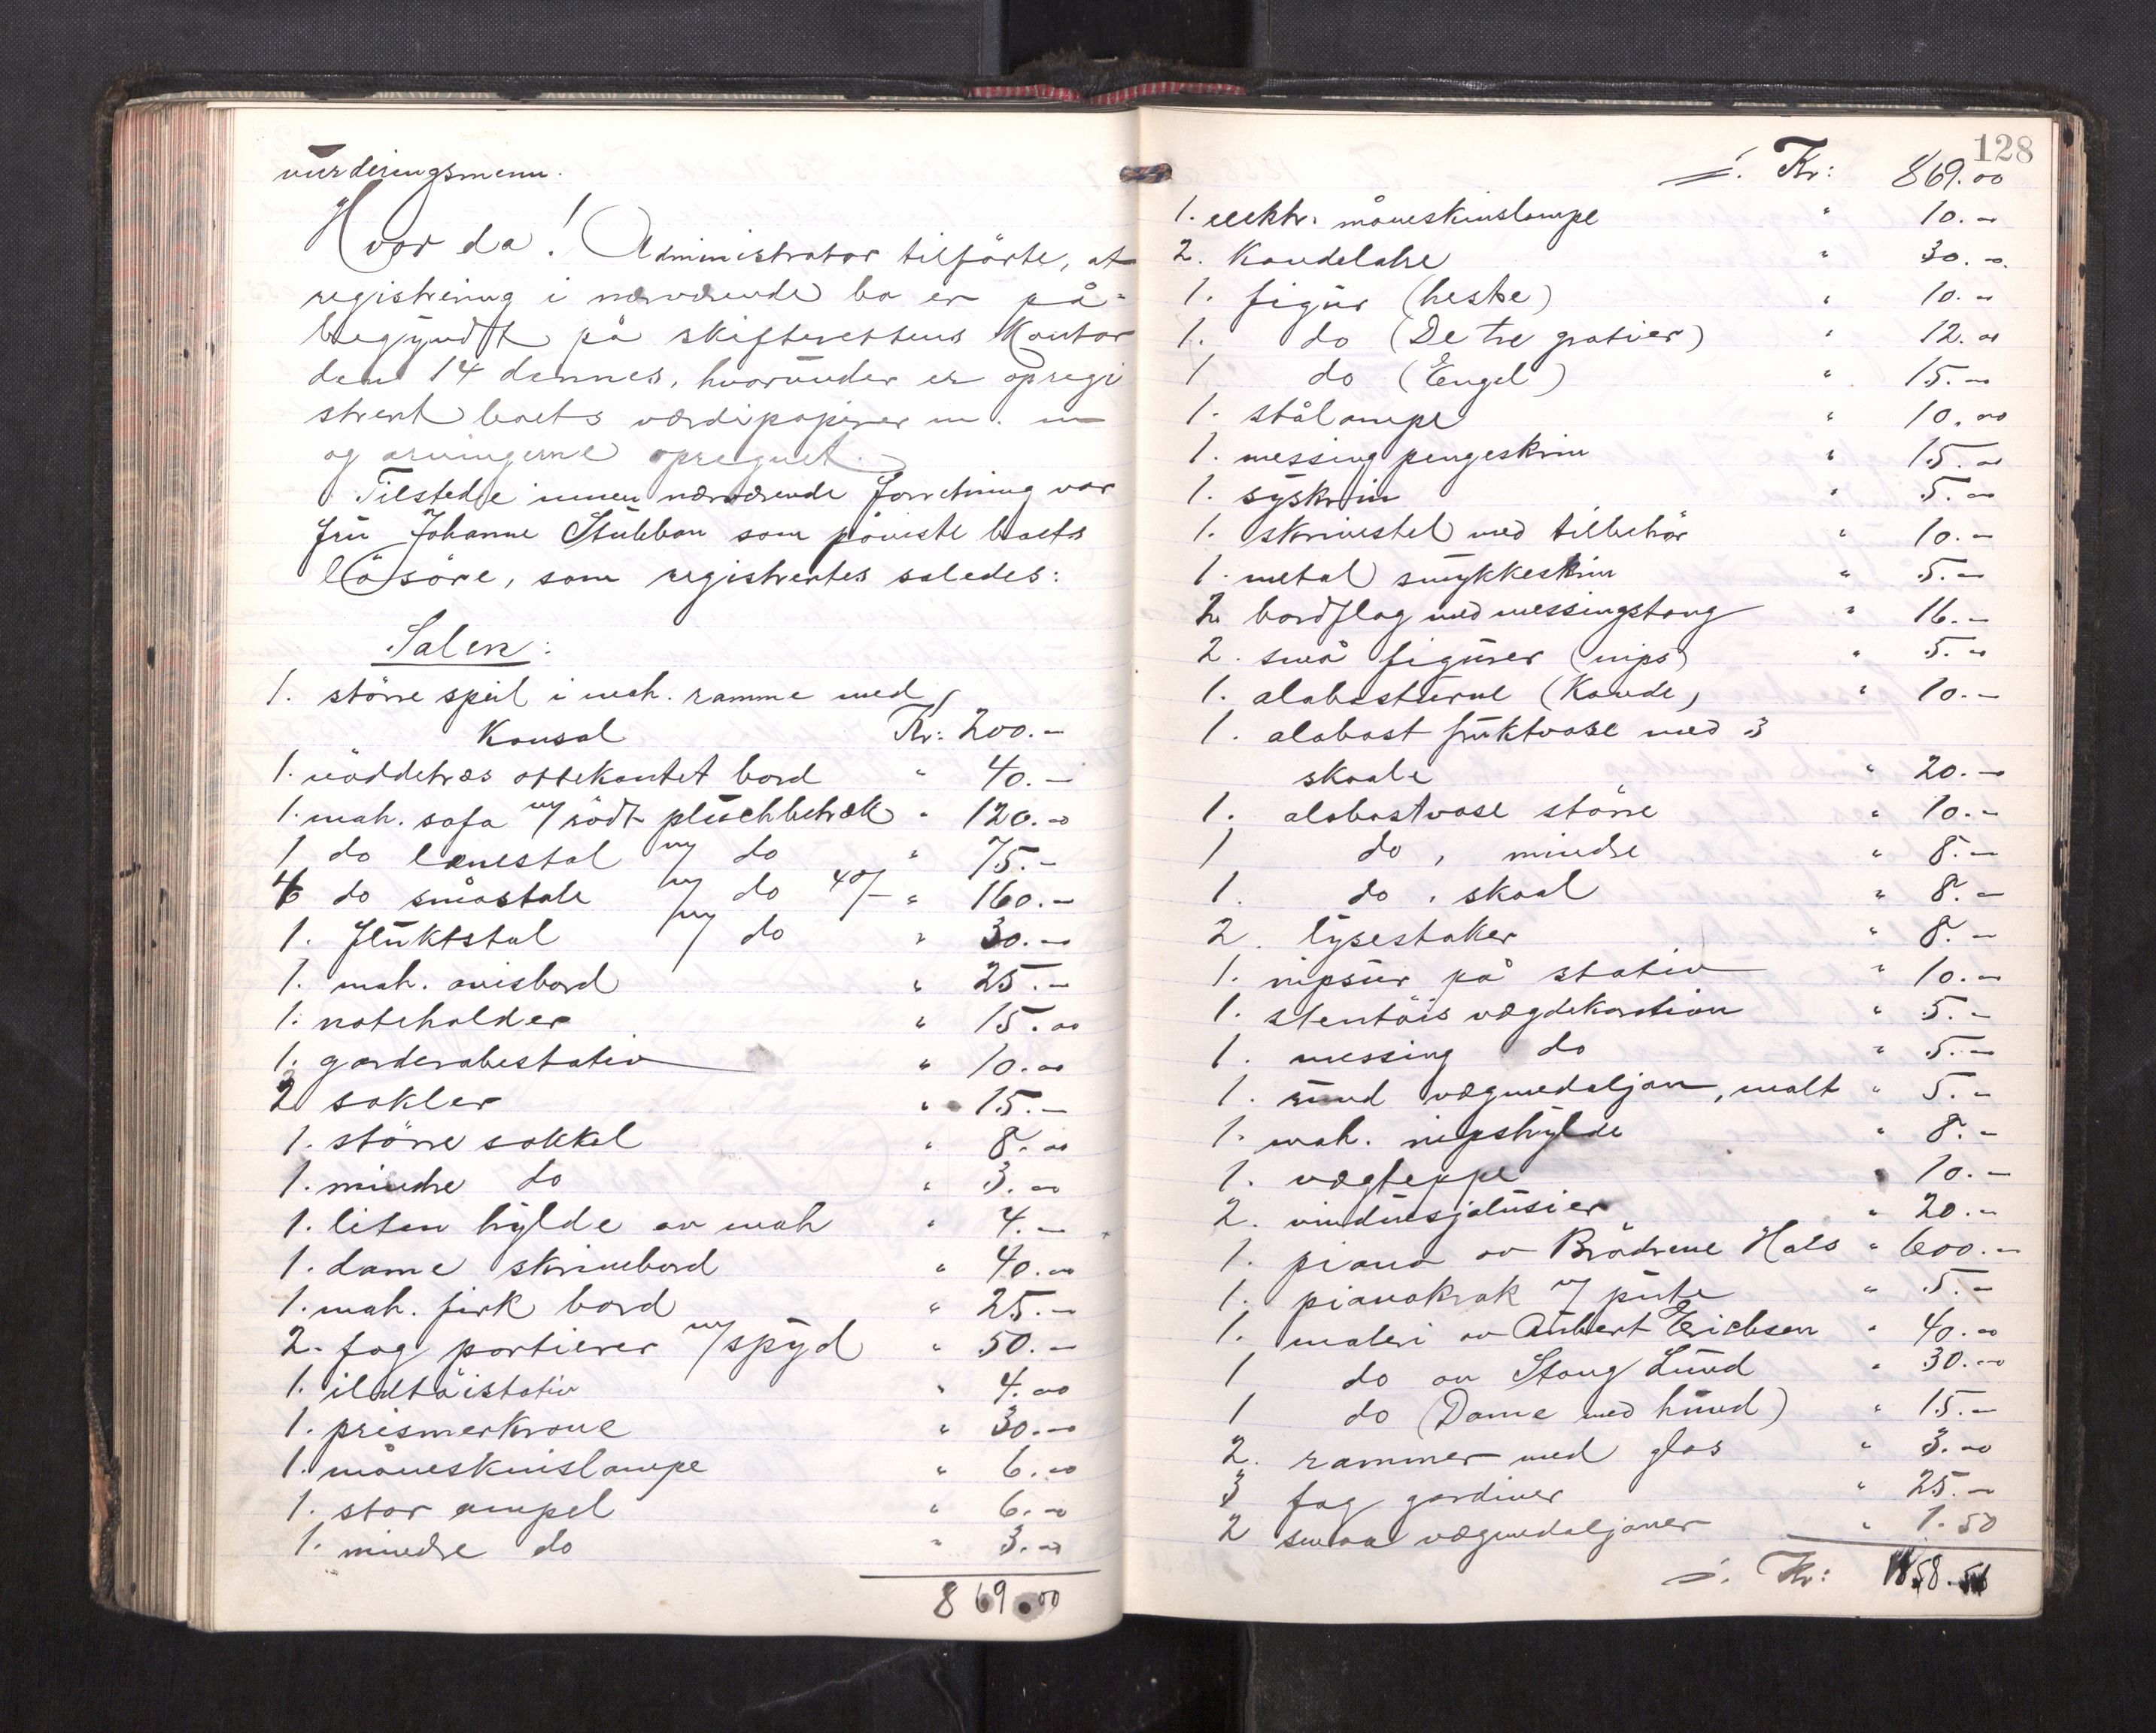 vurderingsmenn.
Hvor da! Administrator tilförte, at
registrering i nærværende bo er på-
begyndt på skifterettens Kontor
den 14 dennes, hvorunder er opregi
strert boets værdipapirer m. m
og arvingerne opregnet.
Tilstede innen nærværende forretning var
fru Johanne Stubban som påviste boets
lösöre, som registrertes saledes:
Salen:
1. större speil i mah. ramme med
Konsol Kr: 200.-
1. nöddetræs ottekantet bord " 40.-
1. mah. sofa m/ rödt plüschbetræk " 120.00
1 do lænestol m/ do " 75.-
4 do småstole m/ do 40/- " 160.-
1. fluktstol m/ do " 30.-
1. mah. avisbord " 25.-
1. noteholder " 15.00
1. garderobestativ " 10.00
2 sokler " 15.-
1. större sokkel " 8.00
1. mindre do " 3.00
1. liten hylde av mah " 4.-
1. dame skrivebord " 40.00
1. mah. firk bord " 25.-
2. fag portierer m/ spyd " 50.-
1. ildtöistativ " 4.00
1. prismerkrone " 30.00
1. måneskinslampe " 6.00
1. stor ampel " 6.00
1. mindre do " 3.00
869.00
128
Kr: 869.00
1. elektr. måneskinslampe " 10.-
2. Kandelabre " 30.-
1. figur (heste) " 10.-
1. do (De tre gratier) " 12.00
1 do (Engel) " 15.-
1. stålampe " 10.00
1. messing pengeskrin " 15.00
1. syskrin " 5.00
1. skrivestel med tilbehör " 10.-
1. metal smykkeskrin " 5.-
2 bordflag med messingstang " 16.-
2. små figurer (nips) " 5.00
1. alabasturne (Kande) " 10.-
1. alabast fruktvase med 3
skaale " 20.-
1. alabastvase större " 10.-
1 do, mindre " 8.-
1. do. skaal " 8.-
2. lysestaker " 8.-
1. nipsur på stativ " 10.-
1. stentöis vægdekoration " 5.-
1. messing do " 5.-
1. rund vægmedaljon, malt " 5.-
1. mah. nipshylde " 8.-
1. vægteppe " 10.-
2. vindusjalusier " 20.-
1. piano av Brödrene Hals " 600.-
1. pianokrak m/ pute " 5.-
1. maleri av Aubert Erichsen " 40.00
1 do av Stang Lund " 30.00
1 do (Dame med hund) " 15.-
2. rammer med glas " 3.00
3 fag gardiner " 25.-
2 smaa vægmedaljoner " 1.50
Kr: